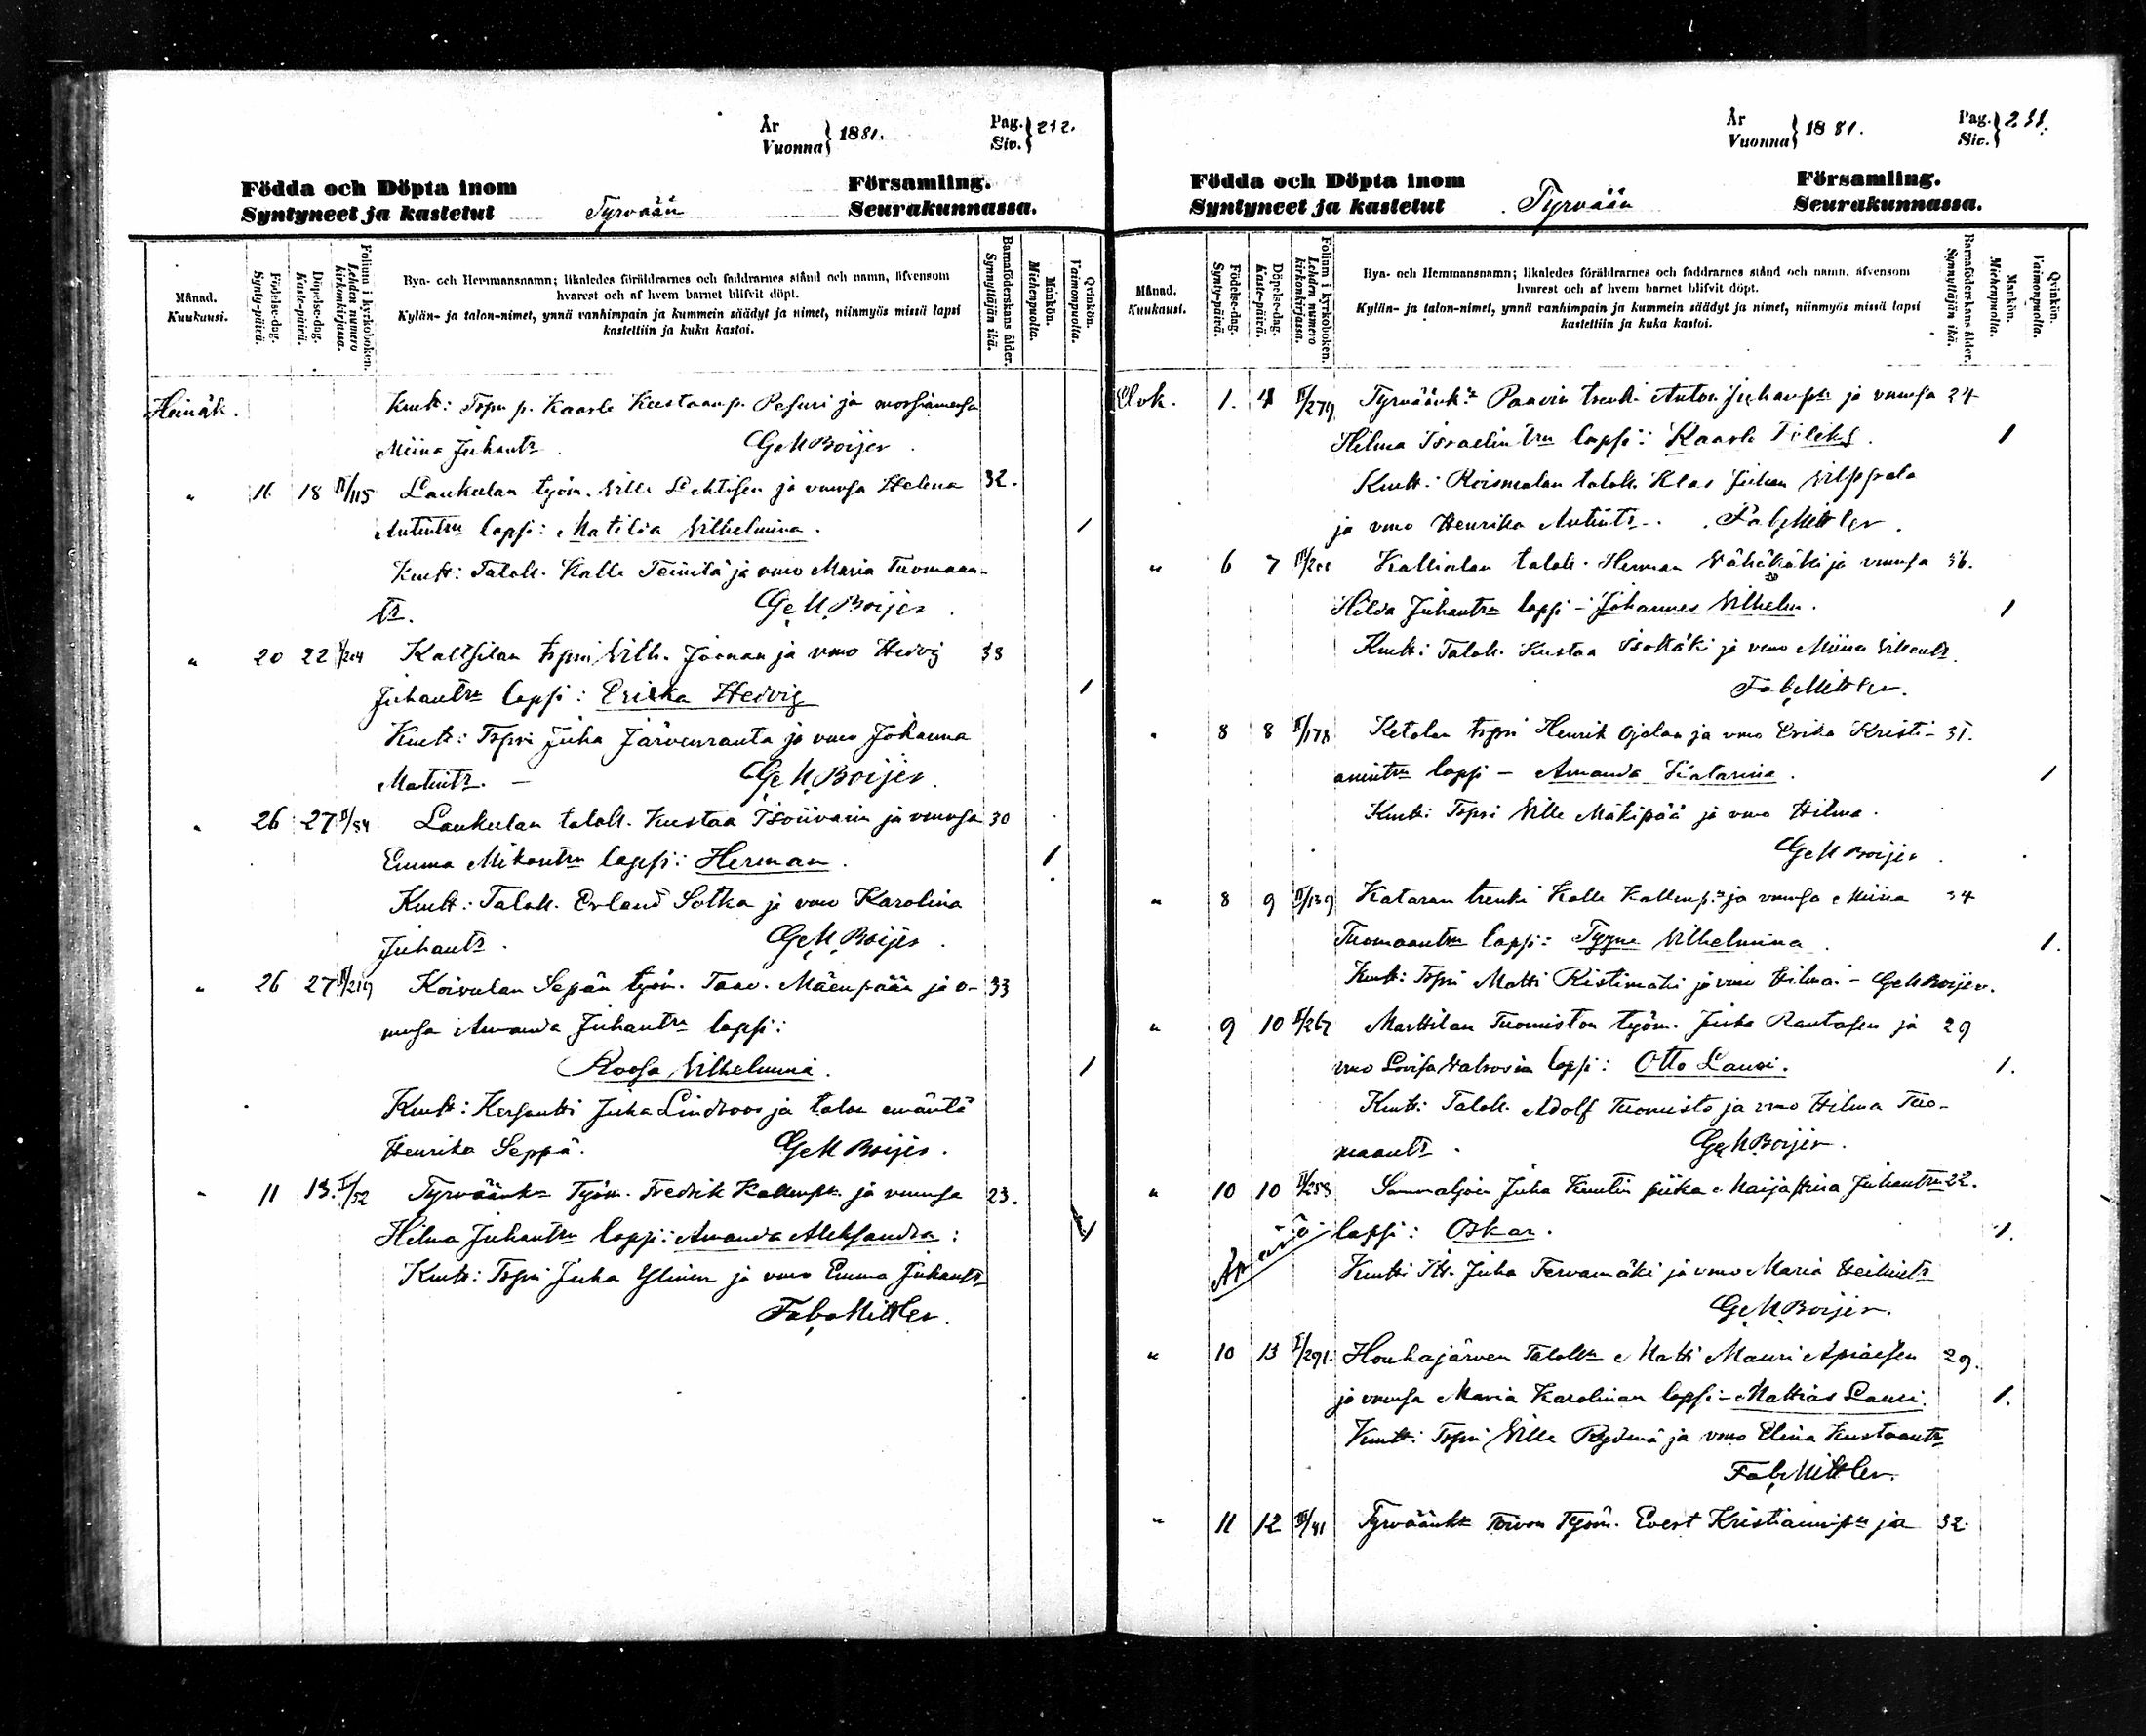 År
Vuonna } 1881.
Pag.
Siv. } 232.
Födda och Döpta inom
Syntyneet ja kastetut
Tyrvään
Församling.
Seurakunnassa.
Månad.
Kuukausi.
Födelse-dag.
Synty-päivä.
Döpelse-dag.
Kaste-päivä.
Folium i kyrkoboken.
Lehden numero
kirkonkirjassa.
Bya- och Hemmansnamn; likaledes föräldrarnes och faddrarnes stånd och namn, äfvensom
hvarest och af hvem barnet blifvit döpt.
Kylän- ja talon-nimet, ynnä vanhimpain ja kummein säädyt ja nimet, niinmyös missä lapsi
kastettiin ja kuka kastoi.
Barnaföderskans ålder.
Synnyttäjän ikä.
Mankön.
Miehenpuolta.
Qvinkön.
Vaimonpuolta.
Heinäk. Kmtt: Tspn p. Kaarle Kustaanp. Pesuri ja
Miina Juhantr. GeMBoijer.
" 16 18 II/115 Laukulan työm. Ville Lehtisen ja vmnsa Helena 32.
Antintrn lapsi: Matilda Vilhelmina. 1
Kmtt: Taloll. Kalle ja vmo Maria Tuomaan-
tr. GeMBoijer.
" 20 22 Kaltsilan tspn Vilh. Joonan ja vmo Hedvig 38
Juhantrn lapsi: Erika Hedvig 1
Kmtt: Tspri Juha Järvenranta ja vmo Johanna
Matintr. - GeMBoijer.
" 26 27 Laukulan taloll. Kustaa Isoiivarin ja vmnsa 30
Emma Mikontrn lapsi: Herman. 1
Kmtt: Taloll. Erland Sotka ja vmo Karolina
Juhantr. GeMBoijer.
" 26 27 II/219 Koivulan Sepän työm. Taav. Mäenpään ja v- 33
mnsa Amanda Juhantrn lapsi:
Roosa Vilhelmina. 1
Kmtt: Kersantti Juha Lindroos ja talon emäntä
Henrika Seppä. GeMBoijer.
" 11 13. I/52 Tyrväänkn Työm. Fredrik Kallenpn ja vmnsa 23.
Hilma Juhantrn lapsi: Amanda Aleksandra: 1
Kmtt: Tspri Juha Ylinen ja vmo Emma Juhantr
FabMittler.
År
Vuonna } 1881.
Pag.
Siv. } 233.
Födda och Döpta inom
Syntyneet ja kastetut
Tyrvään
Församling.
Seurakunnassa.
Månad.
Kuukausi.
Födelse-dag.
Synty-päivä.
Döpelse-dag.
Kaste-päivä.
Folium i kyrkoboken.
Lehden numero
kirkonkirjassa.
Bya- och Hemmansnamn; likaledes föräldrarnes och faddrarnes stånd och namn, äfvensom
hvarest och af hvem barnet blifvit döpt.
Kylän- ja talon-nimet, ynnä vanhimpain ja kummein säädyt ja nimet, niinmyös missä lapsi
kastettiin ja kuka kastoi.
Barnaföderskans ålder.
Synnyttäjän ikä.
Mankön.
Miehenpuolta.
Qvinkön.
Vaimonpuolta.
Elok. 1. 4 II/279 Tyrväänkn Paavin trenk. Anton Juhanpn ja vmnsa 24
Hilma Israelintrn lapsi: Kaarle 1
Kmtt: Roismalan taloll. Klas Juhan Vilppala
ja vmo Henrika Antintr. FabMittler.
" 6 7 Kallialan taloll. Herman Vähäkäki ja vmnsa 36.
Hilda Juhantrn lapsi - Johannes Vilhelm. 1
Kmtt: Taloll. Kustaa Isokäki ja vmo Miina
FabMittler.
" 8 8 II/178 Ketolan tspri Henrik Ojalan ja vmo Erika Kristi- 31.
anintrn lapsi - Amanda Katarina. 1
Kmtt: Tspri Ville Mäkipää ja vmo Hilma.
GeMBoijer.
" 8 9 II/139 Kataran trenki Kalle Kallenpn ja vmnsa Miina 34
Tuomaantrn lapsi: Tyyne Vilhelmina. 1.
Kmtt: Tspri Matti Ristimäki ja vmo Hilma - GeMBoijer.
" 9 10 II/267 Marttilan Tuomiston työm. Juha Rantasen ja 29
vmo Lovisa lapsi: Otto Lauri. 1.
Kmtt: Taloll. Adolf Tuomisto ja vmo Hilma Tuo-
maantr. GeMBoijer.
" 10 10 II/253 Sammaljoen Juha Knutin piika Maija Stiina Juhantrn 22.
Äpärä lapsi: Oskar. 1.
Kmtt: Itt. Juha Tervamäki ja vmo Maria Heikintr
GeMBoijer.
" 10 13 I/291. Houhajärven Talolln Matti Mauri Apiaisen 29.
ja vmnsa Maria Karolinan lapsi - Mattias Lauri. 1.
Kmtt: Tspri Ville Rydmä ja vmo Elina Kustaantr
FabMittler.
" 11 12 III/41 Tyrväänkn Työm. Evert Kristianinpn ja 32.